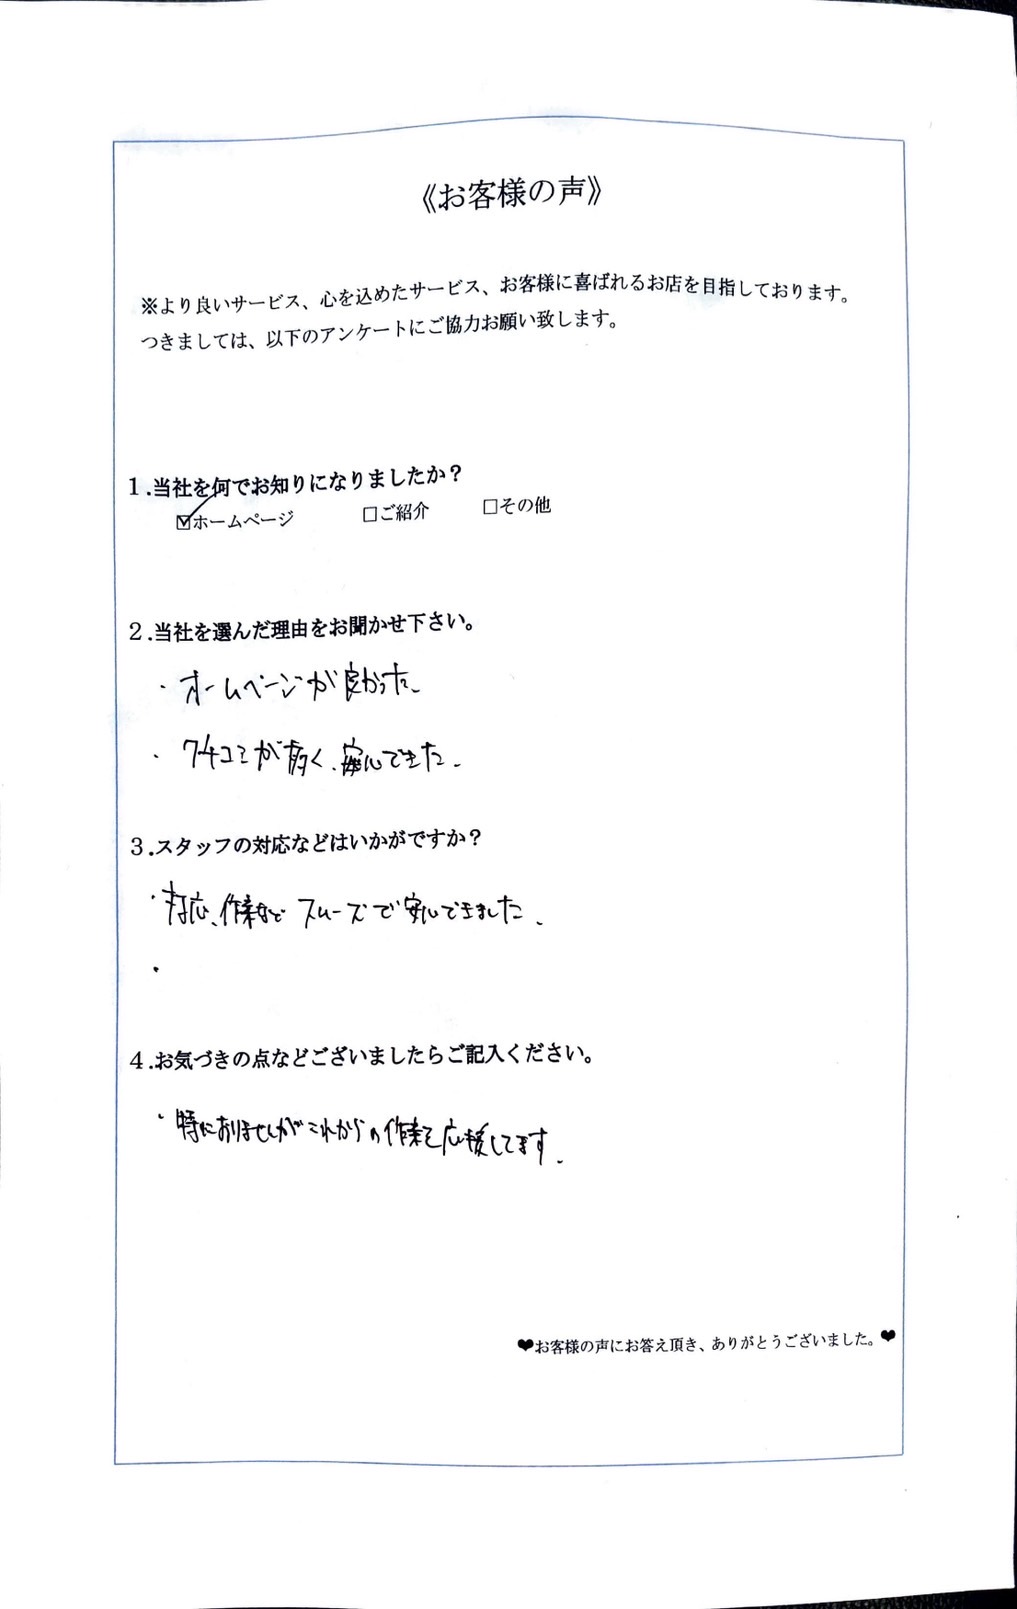 《お客様の声》
※より良いサービス、心を込めたサービス、お客様に喜ばれるお店を目指しております。
つきましては、以下のアンケートにご協力お願い致します。
1.当社を何でお知りになりましたか？
☑ホームページ □ご紹介 □その他
2.当社を選んだ理由をお聞かせ下さい。
・ホームページが良かった。
・クチコミが多く、安心できた。
3.スタッフの対応などはいかがですか？
・対応、作業など スムーズで安心できました。
・
4.お気づきの点などございましたらご記入ください。
・特におりませんがこれからの作業を応援してます。
❤お客様の声にお答え頂き、ありがとうございました。❤